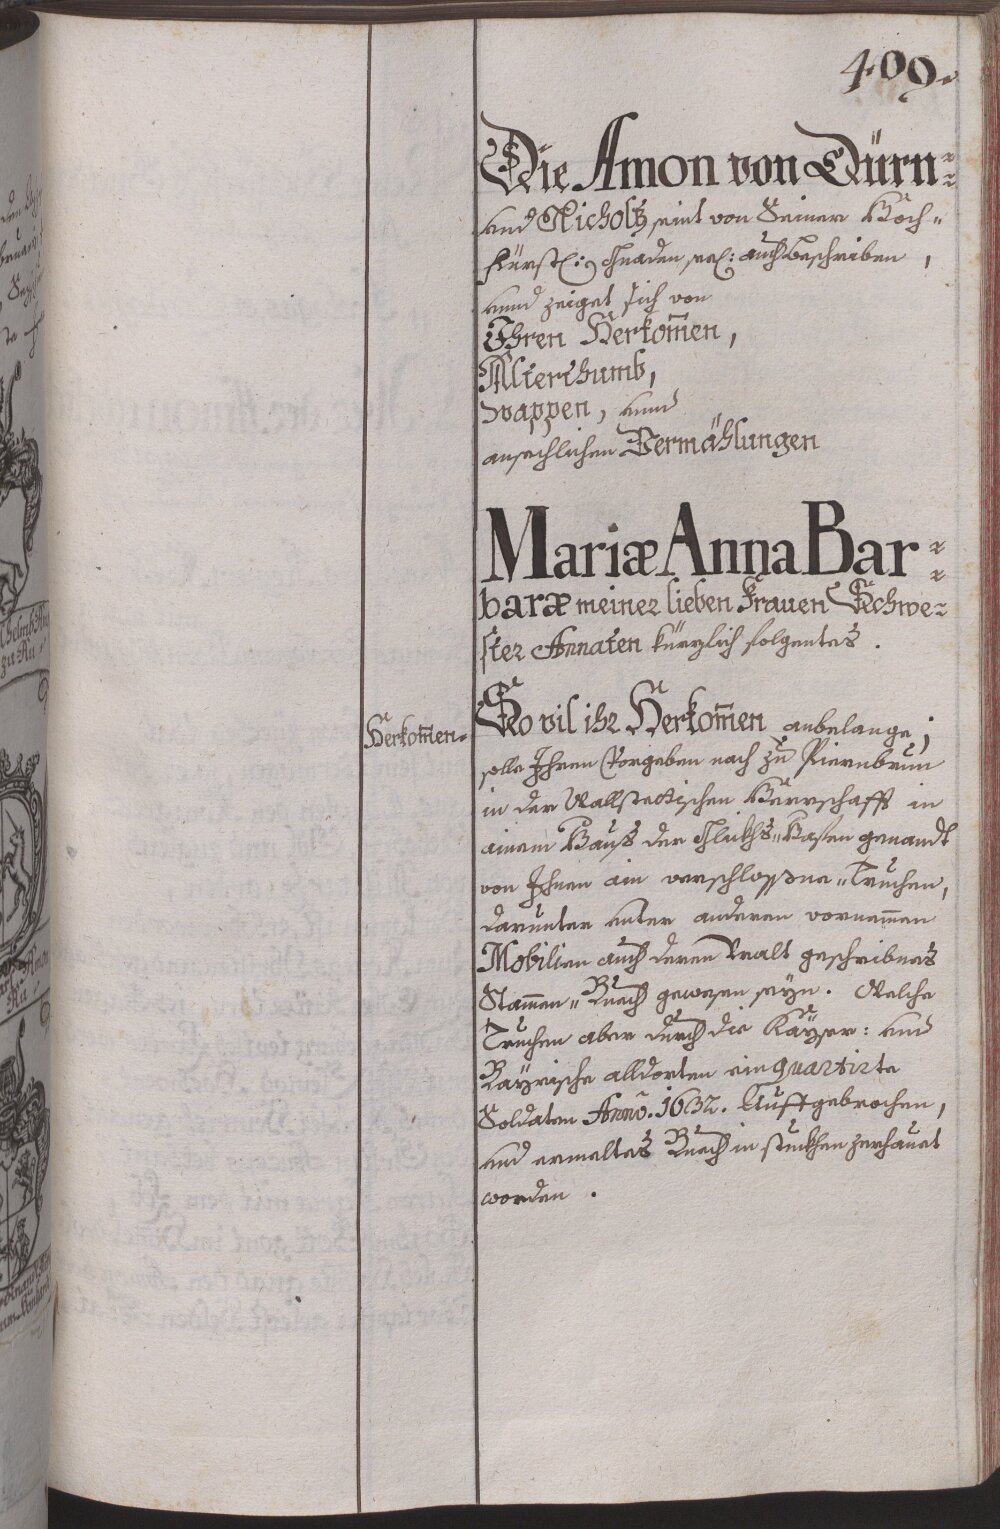 409.
Die Amon von Dürn=
und Aicholtz seint von Seiner Hoch=
Fürstl: Gnaden sel: auch beschriben,
unnd zeiget sich von
Ihren Herkom̃en,
Alterthumb,
Wappen, unnd
ansechlichen Vermählungen
Mariæ Anna Bar=
baræ meiner lieben Frauen Schwe=
ster Annaten kürzlich folgentes.
Herkom̃en.
So vil ihr Herkom̃en anbelange;
solle Ihren Vorgeben nach zu Piernbrun
in der Wallstettischen Herrschafft in
ainem Hauß der Glickhs=Hafen genandt
von Ihnen ain verschloßne=Truchen,
darunter unter anderen vornem̃en
Mobilien auch deren Uralt geschribnes
Stam̃en=Buech gewesen seyn. Welche
Truchen aber durch die Kayser: und
Bayrische alldorten ein quartirte
Soldaten Anno. 1632. Auffgebrochen,
und ermeltes Buech in stuckhen zerhauet
worden.